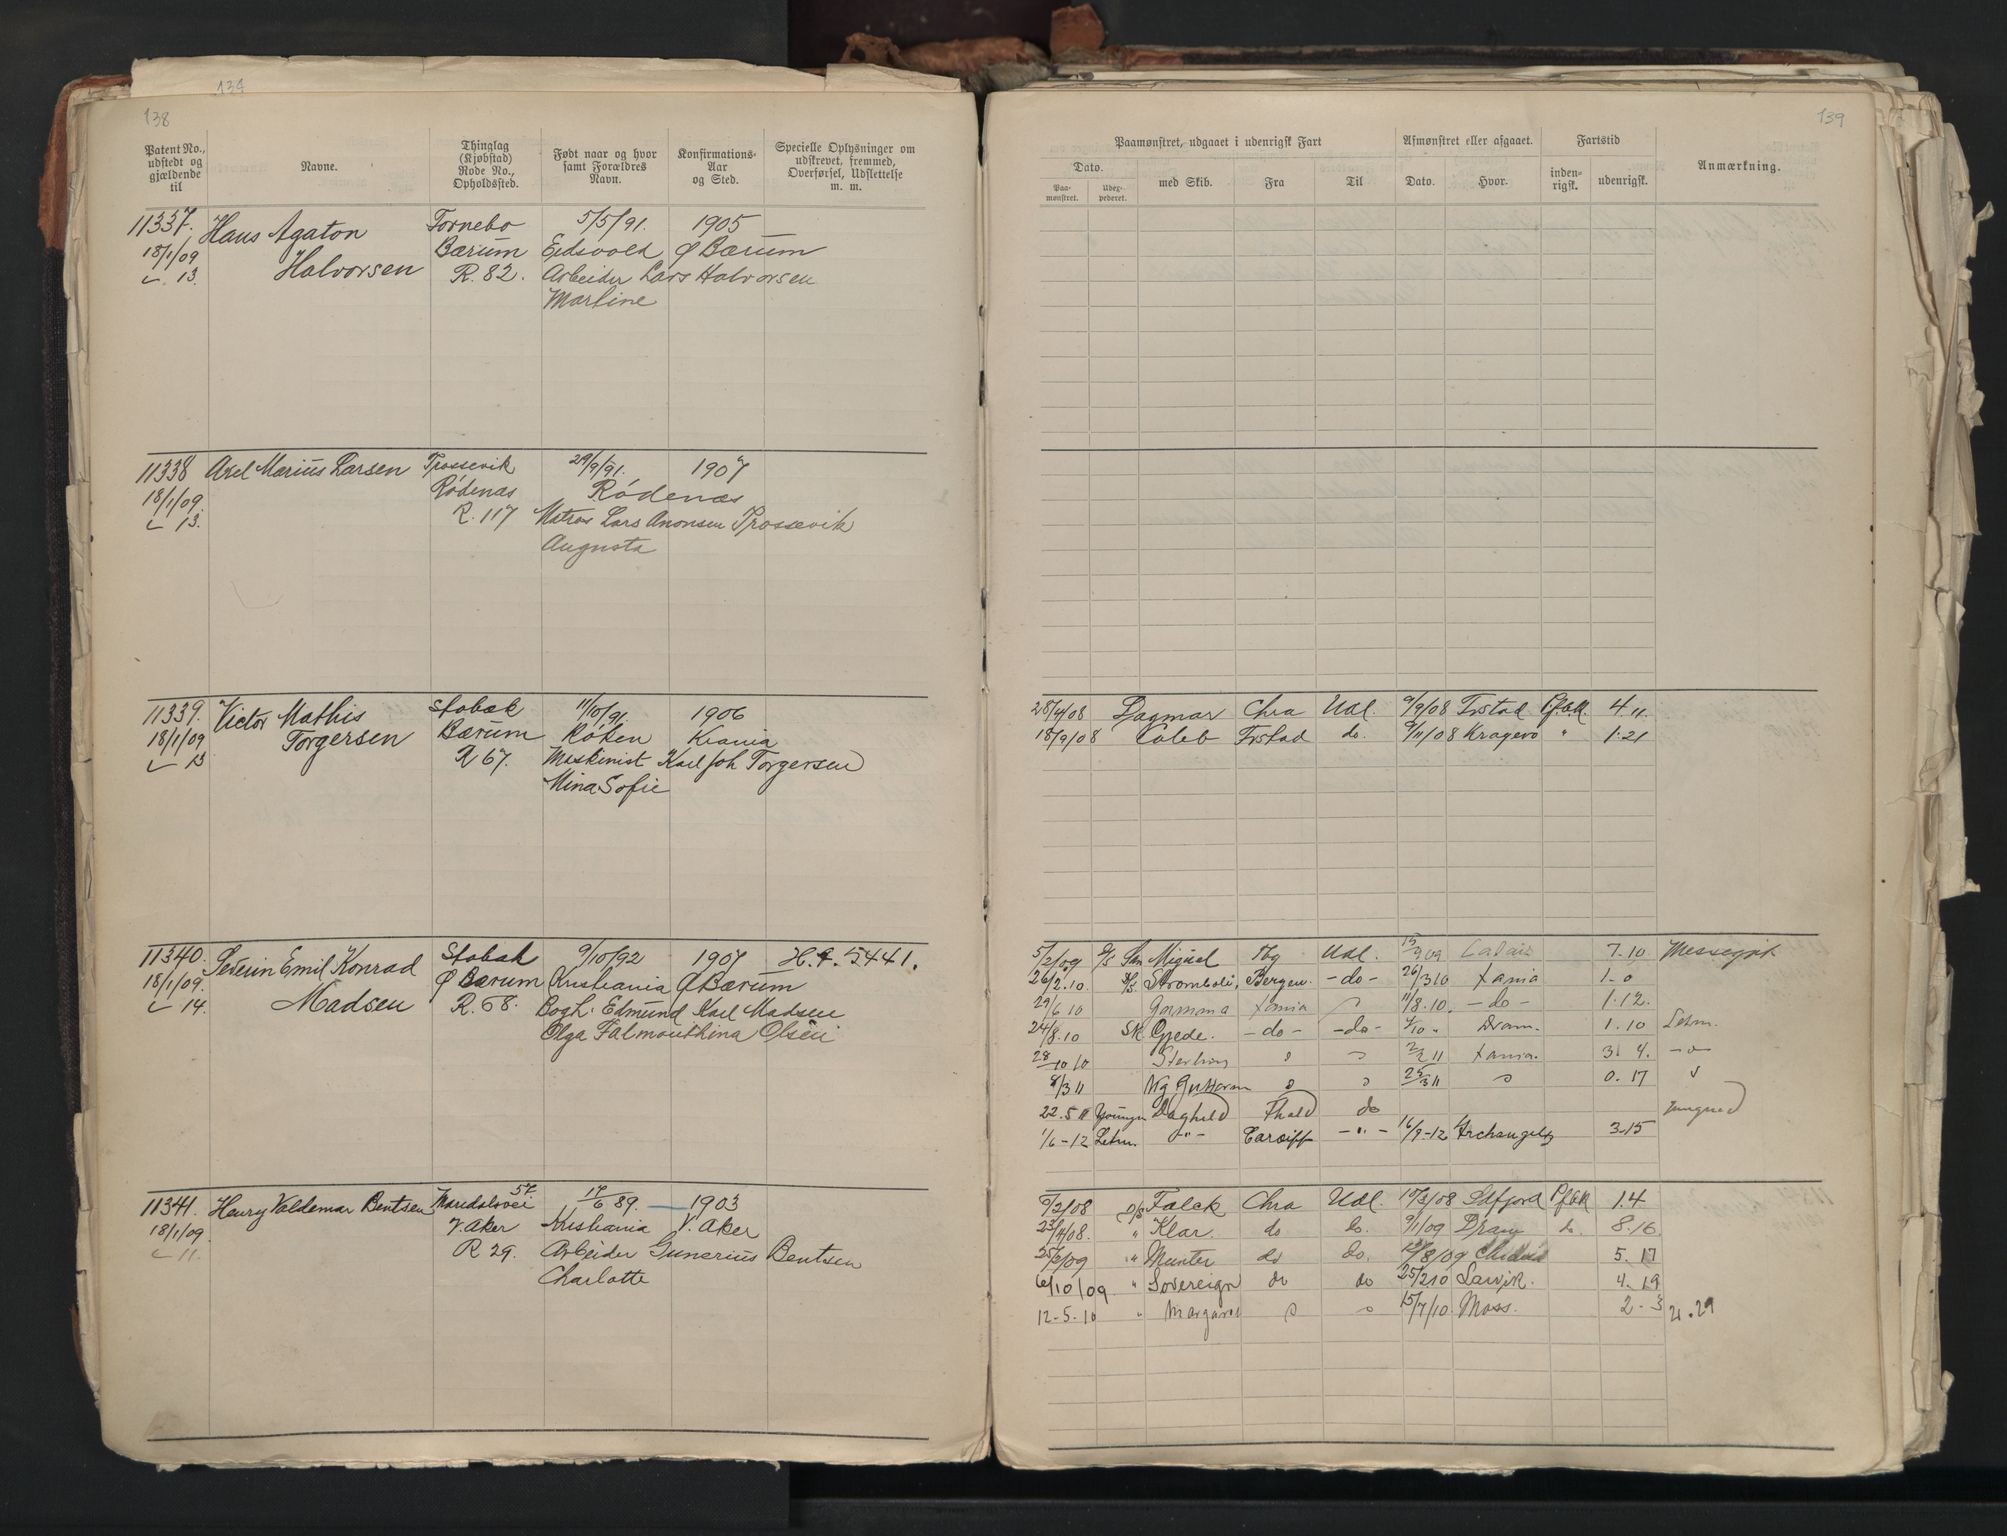 134
138
Patent No., udstedt og gjældende til
Navne.
Thinglag (Kjøbstad) Rode No., Opholdssted.
Født naar og hvor samt Forældres Navn.
Konfirmations-Aar og Sted.
Specielle Oplysninger om udskrevet, fremmed, Overførsel, Udslettelse m. m.
11337. Hans Agaton Fornebo 5/5/91. 1905
18/1/09 Halvorsen Bærum Eidsvold Ø Bærum
13. R. 82. Arbeider Lars Halvorsen
Martine
11338 Axel Marius Larsen Trossevik 29/9/91. 1907
18/1/09. Rødenæs Rødenæs
13. R. 117 Matros Lars Anonsen Trossevik
Augusta
11339. Victor Mathis Stabæk 11/10/91. 1906
18/1/09 Torgersen Bærum Røken Krania
13 R 67. Maskinist Karl Joh Torgersen
Mina Sofie
11340. Severin Emil Konrad Stabæk 9/10/92 1907 H. 4. 5441.
18/1/09. Madsen Ø Bærum Kristiania Ø Bærum
14. R. 68. Bogh. Edmund Karl Madsen
Olga Falmouthina Olsen
11341. Henry Valdemar Bentsen Maridalsvei 57 17/6 89. 1903
18/1/09. V. Aker Kristiania V. Aker
11. R 29. Arbeider Gunerius Bentsen
Charlotte
139
Paamønstret, udgaaet i udenrigsk Fart
Afmønstret eller afgaaet.
Fartstid
Anmærkning.
Dato.
Paa-mønstret.
Udex-pederet.
med Skib.
Fra
Til
Dato.
Hvor.
inden-rigsk.
udenrigsk.
28/4/08 Dagmar Chra Udl. 9/9/08 Frstad Pfæk 4 11.
18/9/08 Caleb Frstad do. 9/11/08 Kragerø " 1.21
5/2/09 D/S San Miguel Tbg Udl. 15/9 09 Calais 7.10 Messegut
26/2.10 D/S Stromboli, Bergen. -do- 26/3 10 Xania 1-0
29/6 10 Xania 11/8.10. -do- 1.12.
24/8.10 Sk. Gjede. -do- -do- 4/10 " Dram. 1.10 Letm.
28/10 10 Sterling 2/2 11 Xania. 3. 4. -"-
8/3 11 Kg Guttorm 25/3 11 0.17
22.5 11 Youngm Daghild Fhald do Jungmd
1/6-12 Letm. -"- Cardiff -"- 16/9-12 Archangelsk 3-15
9/2/08 D/S Falck Chra Udl. 10/3/08 Sdfjord Pfæk 1.4
23/4/08. " Klar. do do. 9/1/09 Dram do. 8.16
25/2/09 " Munter do do. 12/8/09 5. 17
6/10/09. " Sovereign do do 25/2 10 Larvik. 4. 19
12-5.10 " Margaret 15/7/10. Moss. 2-3
21.29